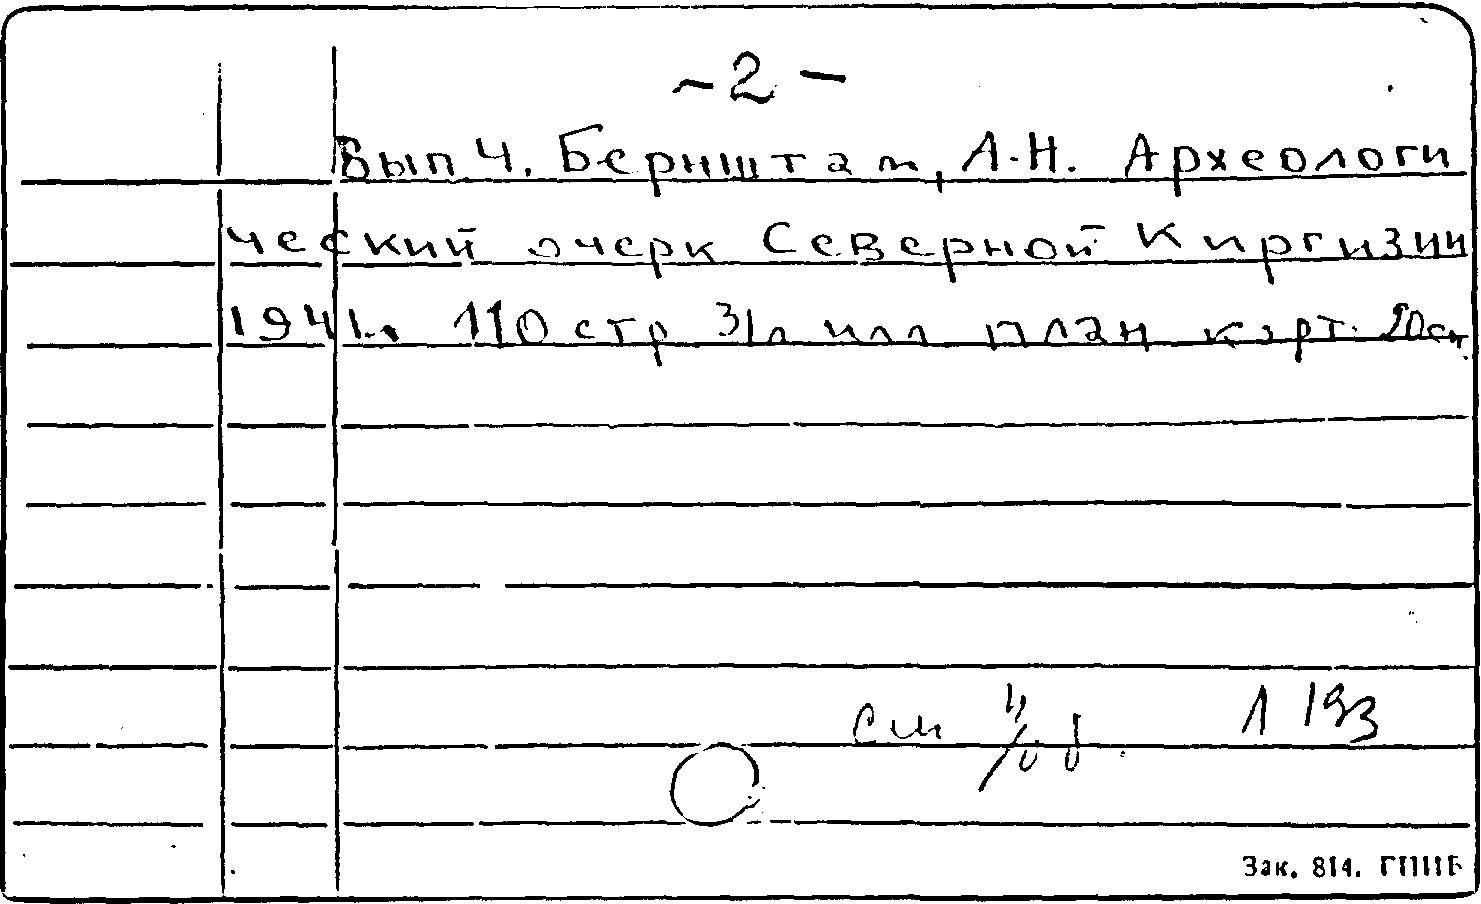 - 2 -
Вып 4. Бернштам, А.Н. Археологи
ческий очерк Северной Киргизии
1941. 110 стр 31л илл план карт. 20см
см
Зак. 814. ГППБ